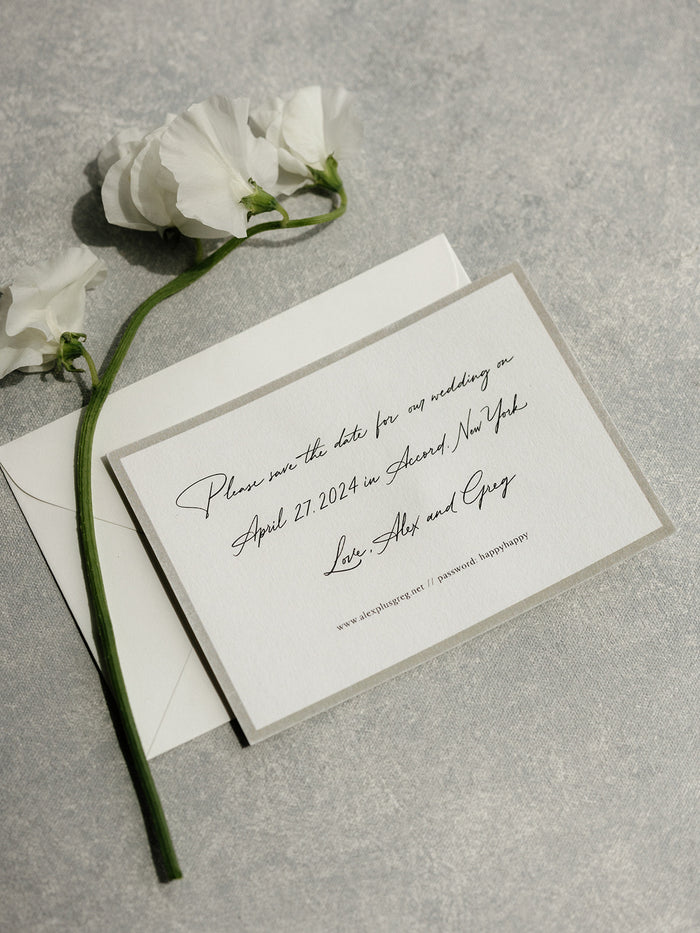 Please save the date for our wedding on
April 27, 2024 in Accord, New York
Love, Alex and Greg
www.alexplusgreg.net // password: happyhappy